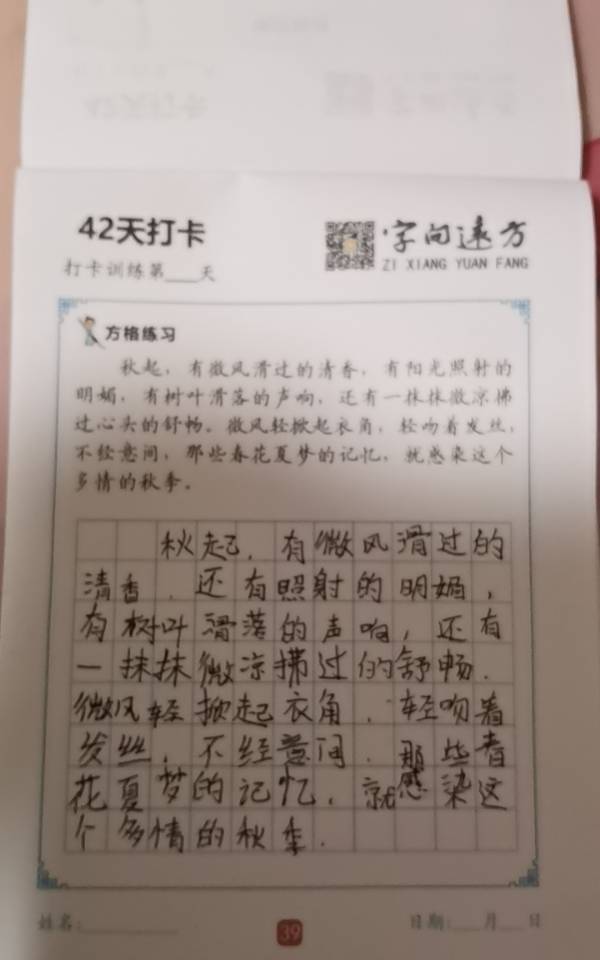 42天打卡
字向远方
ZI XIANG YUAN FANG
打卡训练第___天
方格练习
秋起，有微风滑过的清香，有阳光照射的
明媚，有树叶滑落的声响，还有一抹抹微凉拂
过心头的舒畅。微风轻掀起衣角，轻吻着发丝，
不经意间，那些春花夏梦的记忆，就感染这个
多情的秋季。
秋起，有微风滑过的
清香，还有照射的明媚，
有树叶滑落的声响，还有
一抹抹微凉拂过的舒畅.
微风轻掀起衣角.轻吻着
发丝，不经意间.那些春
花夏梦的记忆，就感染这
个多情的秋季.
姓名:
39
日期:___月___日